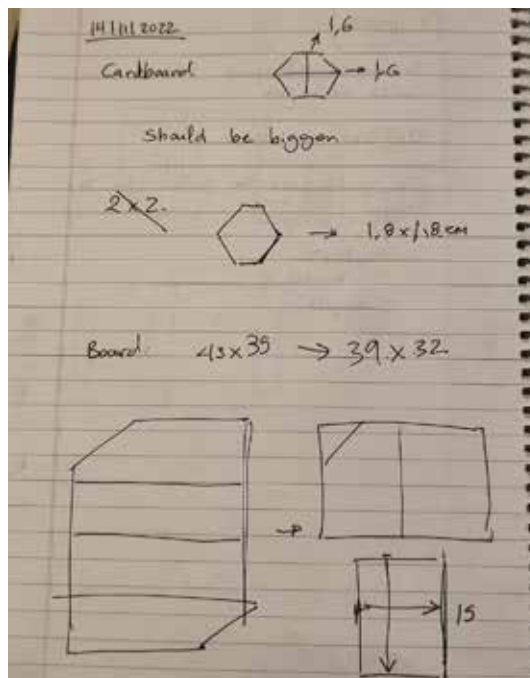 14/11/2022
1,6
Cardboard
1,6
should be bigger
2 x 2.
1,8 x 1,8 cm
Board: 43 x 35 → 39 x 32
15